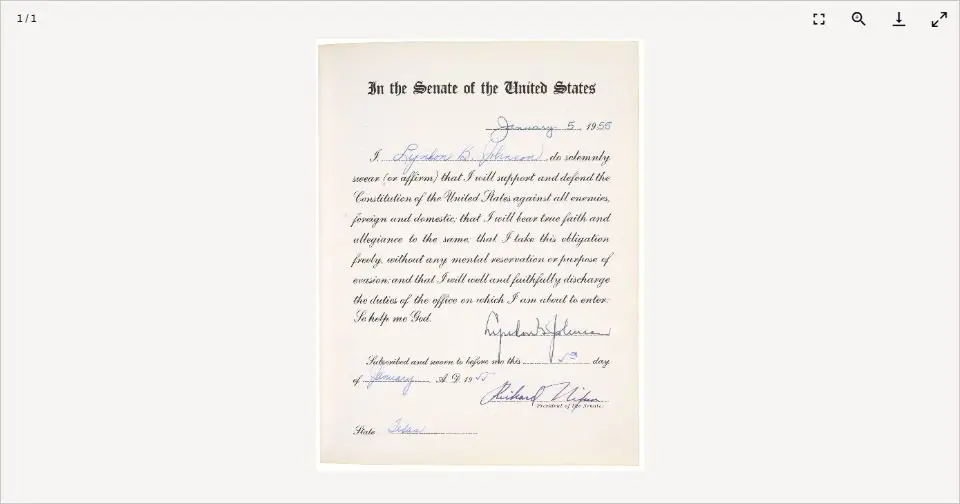 1 / 1
In the Senate of the United States
January 5 1955
I, Lyndon B. Johnson, do solemnly
swear (or affirm) that I will support and defend the
Constitution of the United States against all enemies,
foreign and domestic; that I will bear true faith and
allegiance to the same; that I take this obligation
freely, without any mental reservation or purpose of
evasion; and that I will well and faithfully discharge
the duties of the office on which I am about to enter:
So help me God.
Lyndon B Johnson
Subscribed and sworn to before me this 5th day
of January A.D. 1955
Richard Nixon
President of the Senate.
State Texas